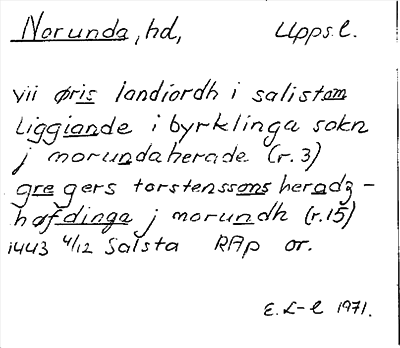 Norunda, hd, Upps.l.
vii øris landiordh i salistom
liggiande i byrklinga sokn
j morundaherade (r. 3)
gregers torstenssons heradz-
høfdinga j morundh (r. 15)
1443 4/12 Salsta RAp or.
E. L-l 1971.